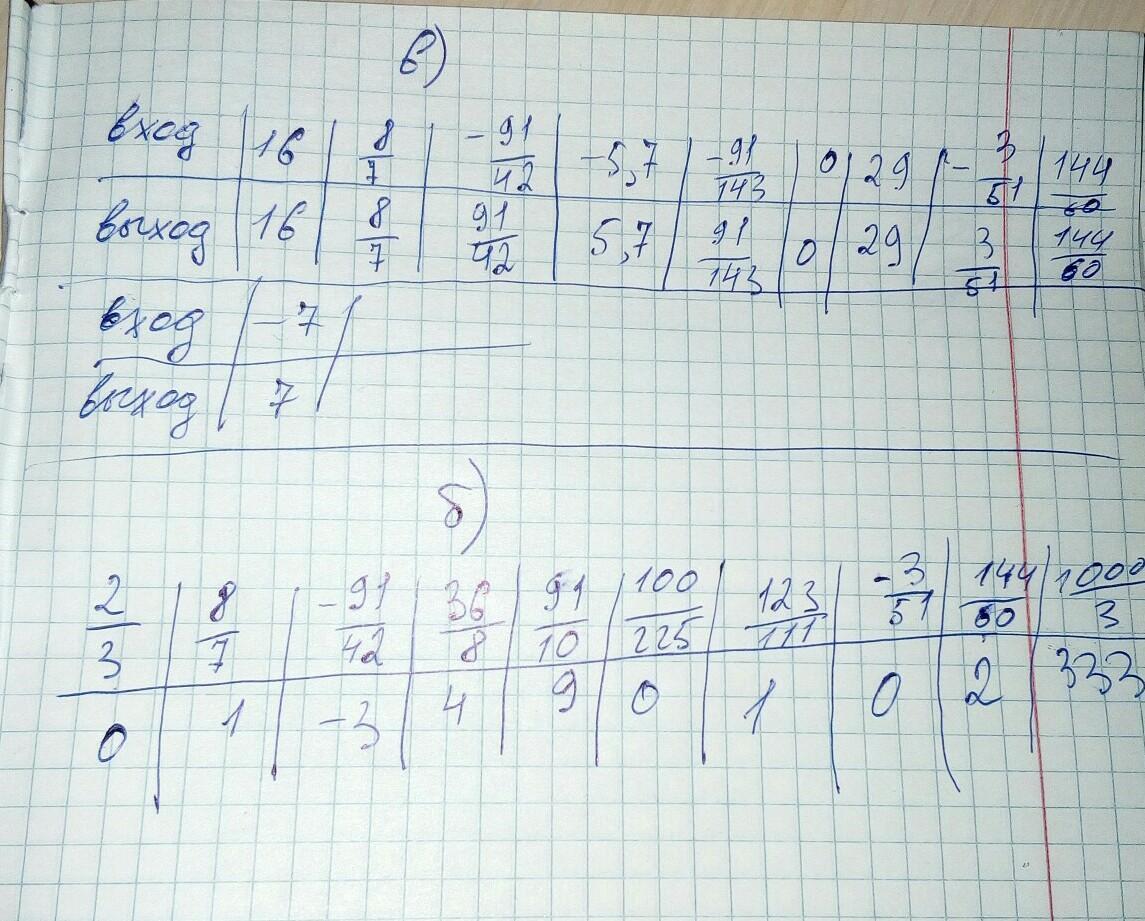 в)
вход 16 8/7 -91/42 -5,7 -91/143 0 29 -3/51 144/60
выход 16 8/7 91/42 5,7 91/143 0 29 3/51 144/60
вход -7
выход 7
б)
2/3 8/7 -91/42 36/8 91/10 100/225 123/111 -3/51 144/60 1000/3
0 1 -3 4 9 0 1 0 2 333